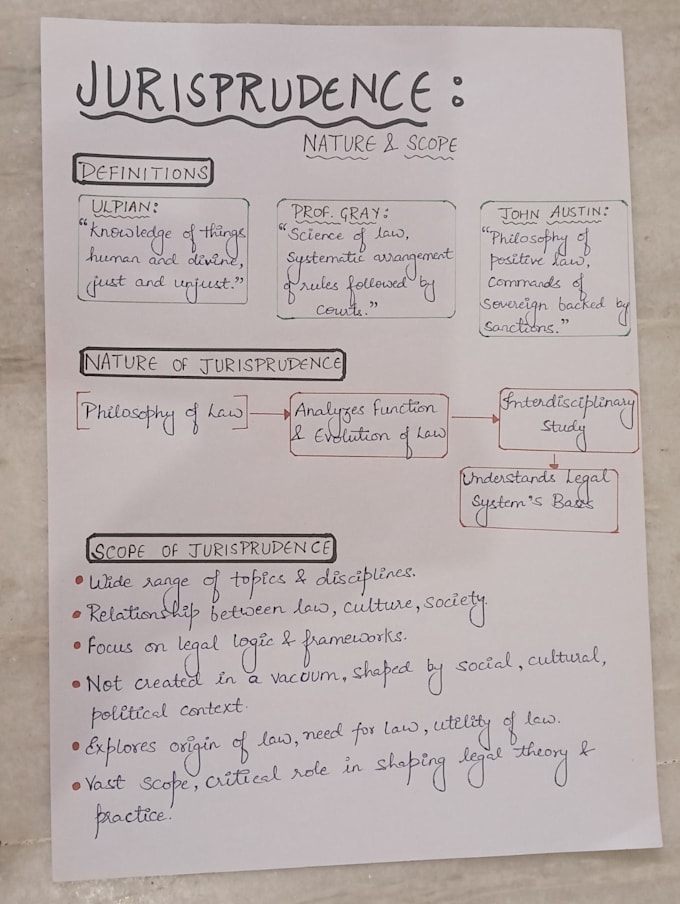 JURISPRUDENCE:
NATURE & SCOPE
DEFINITIONS
ULPIAN:
"Knowledge of things
human and divine,
just and unjust."
PROF. GRAY:
"Science of law,
systematic arrangement
of rules followed by
courts."
JOHN AUSTIN:
"Philosophy of
positive law,
commands of
sovereign backed by
sanctions."
NATURE OF JURISPRUDENCE
[Philosophy of Law]
Analyzes Function
& Evolution of Law
Interdisciplinary
Study
Understands Legal
System's Basis
SCOPE OF JURISPRUDENCE
• Wide range of topics & disciplines.
• Relationship between law, culture, society.
• Focus on legal logic & frameworks.
• Not created in a vacuum, shaped by social, cultural,
political context.
• Explores origin of law, need for law, utility of law.
• Vast scope, critical role in shaping legal theory &
practice.